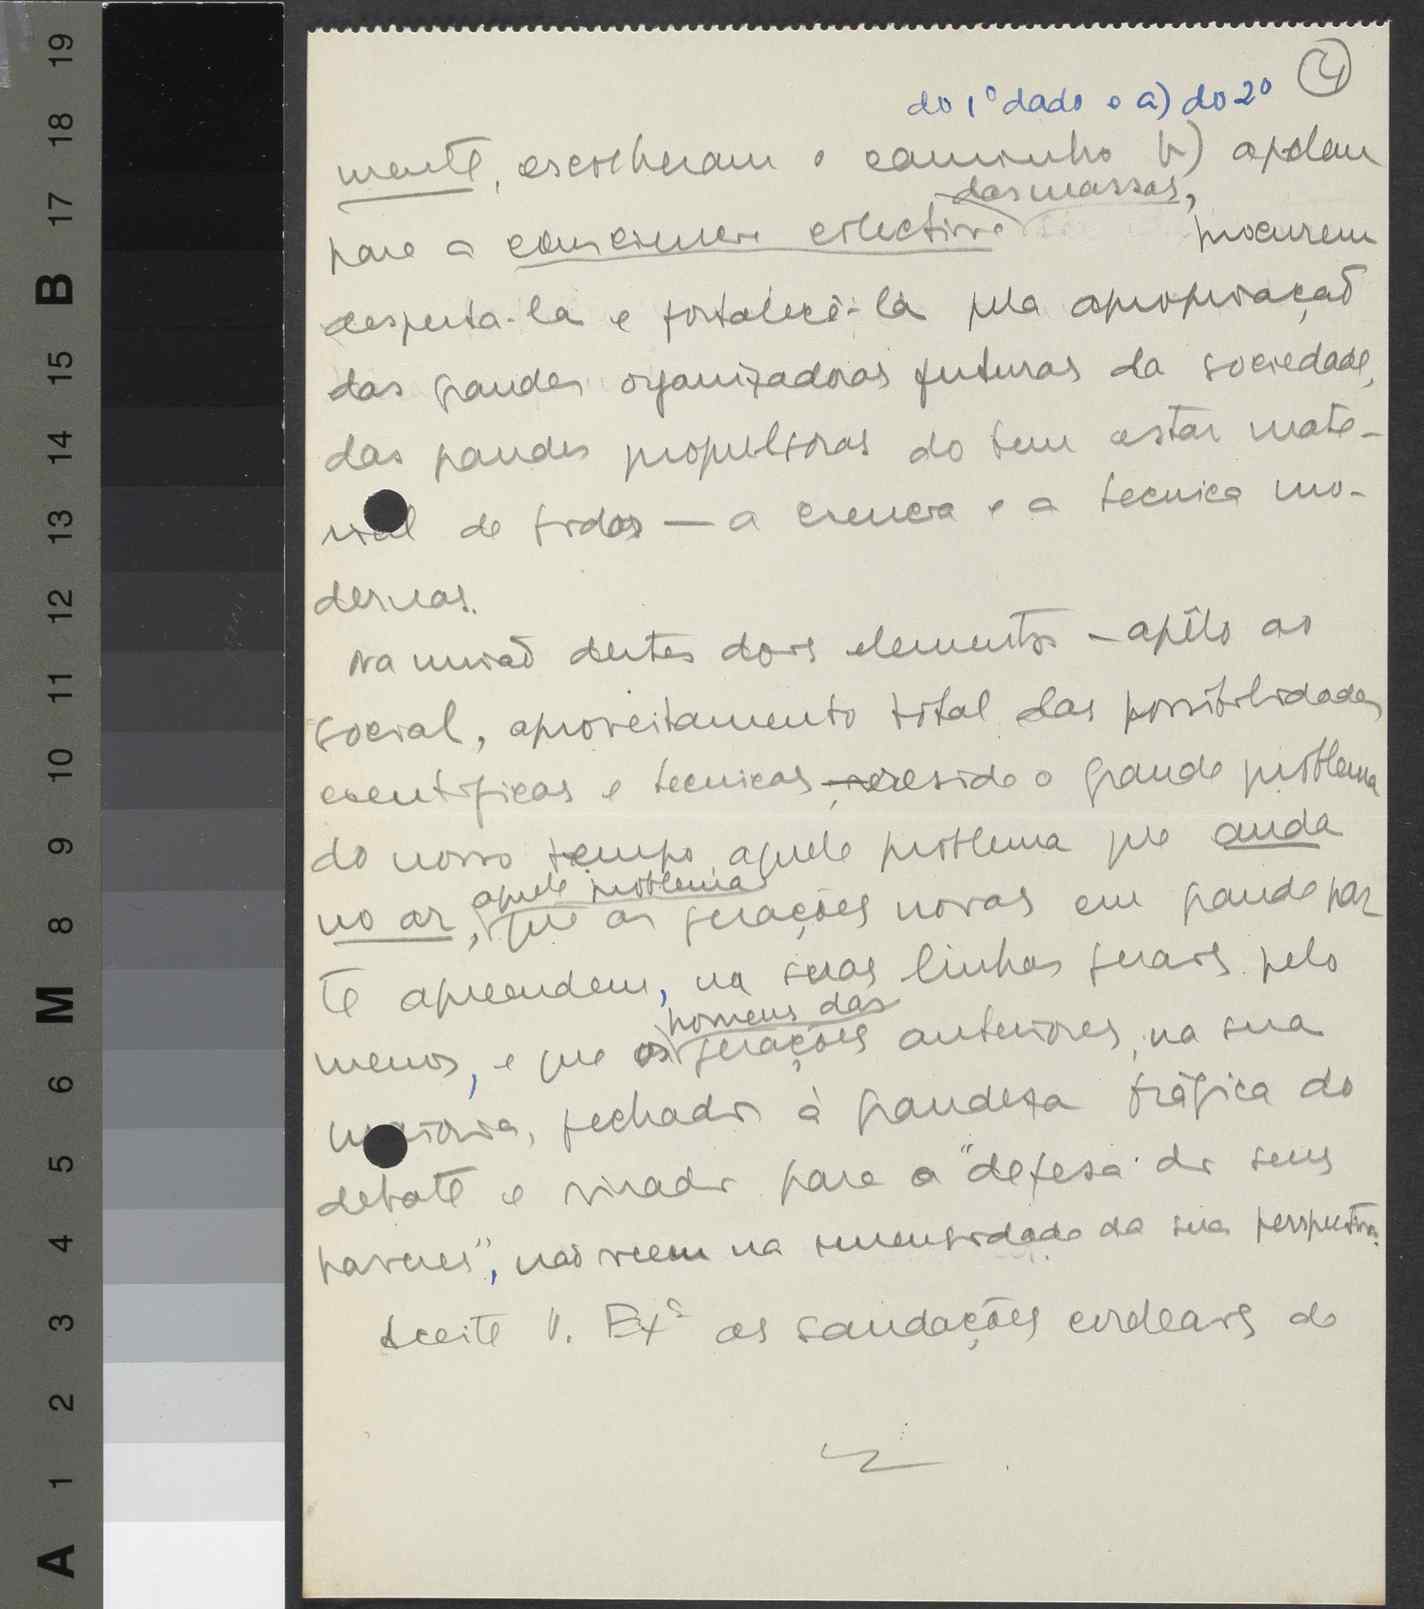 A 1 2 3 4 5 6 M 8 9 10 11 12 13 14 15 B 17 18 19
4
do 1º dado e a) do 2º
mente, escolheram o caminho b) apelam
das massas,
para a consciencia colectiva procurem
desperta-la e fortalecê-la pela apropriação
das grandes organizadoras futuras da sociedade,
das grandes propulsoras do bem estar mate-
rial de todos — a ciencia e a tecnica mo-
dernas.
Na união destes dois elementos – apêlo ao
social, aproveitamento total das possibilidades
cientificas e tecnicas reside o grande problema
do nosso tempo, aquele problema que anda
aquele problema
no ar, que as gerações novas em grande par
te apreendem, na suas linhas gerais pelo
homens das
menos, e que os gerações anteriores, na sua
maioria, fechados à grandeza trágica do
debate e virados para a "defesa dos seus
haveres", não veem na imensidade da sua perspectiva.
Aceite V. Exª as saudações cordeais de